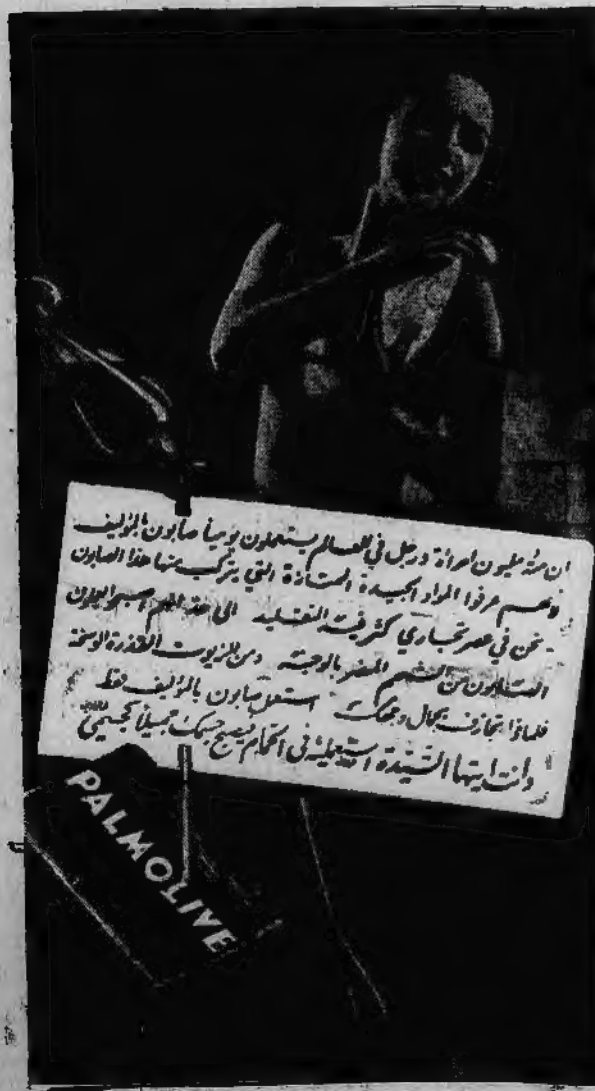 ان مئة مليون امرأة ورجل في العالم يستعملون يومياً صابون بالموليف
المواد الجيدة الممتازة التي يتركب منها هذا الصابون
نحن في عصر تجاري كثر فيه التقليد الى هذا
من الشحم المضر بالوجه ومن الزيوت القذرة الوسخة
فلماذا تجازف بجمال وجهك استعمل صابون بالموليف فقط
وانت ايتها السيدة استعمليه في الحمام فيصبح جسمك جميلاً
PALMOLIVE